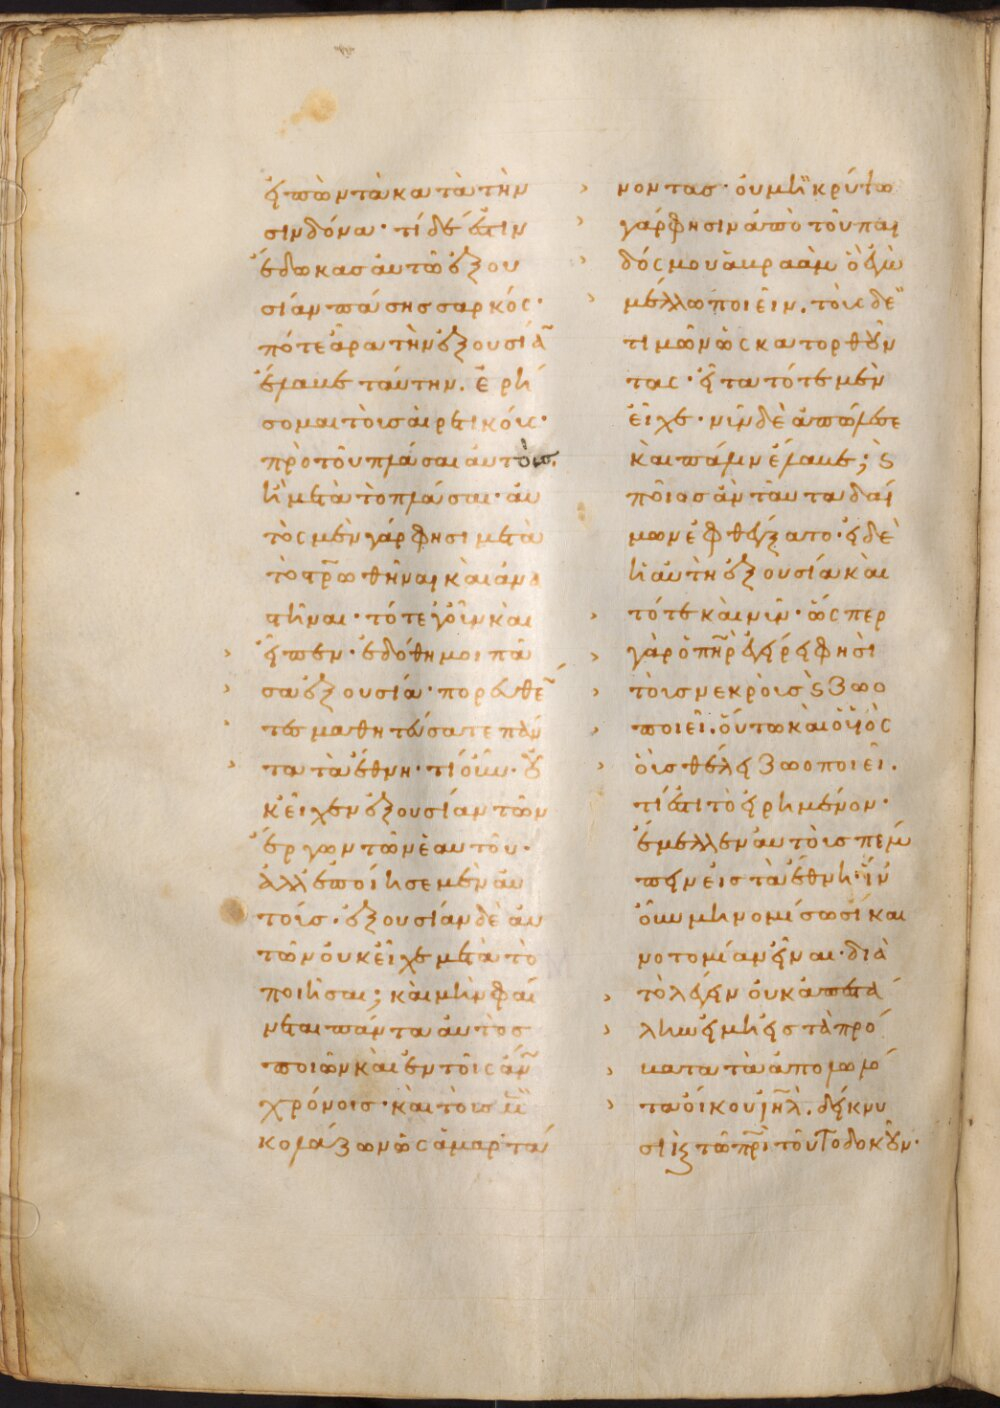 εἰπὼν τὰ κατὰ τὴν
σινδόνα· τί δέ ἐστιν
ἔδωκας αὐτῶ ἐξου
σίαν πάσης σαρκός·
πότε ἄρα τὴν ἐξουσίᾱ
ἔλαβε ταύτην. ἐρή
σομαι τοῖς αἱρετικοῖς·
πρὸ τοῦ πλάσαι αὐτοὺς.
ἢ μετὰ τὸ πλάσαι· αὐ
τὸς μὲν γάρ φησι μετὰ
τὸ στ̅ρωθῆναι καὶ ἀνα
στῆναι· τότε γοῦν καὶ
εἶπεν· ἐδόθη μοι πᾶ
σα ἐξουσία· πορευθέ̅
τες μαθητεύσατε πάν
τα τὰ ἔθνη· τί οὖν· οὐ
κ εἶχεν ἐξουσίαν τῶν
ἔργων τῶν ἑαυτοῦ·
ἀλλ' ἐποίησε μὲν αὐ
τούς· ἐξουσίαν δὲ αὐ
τῶν οὐκ εἶχε μετὰ τὸ
ποιῆσαι; καὶ μὴν φαί
νεται πάντα αὐτὸς
ποιῶν καὶ ἐν τοῖς ἄν̅
χρόνοις· καὶ τοῖς μὲν
κολάζων ὡς ἁμαρτά
νοντας· οὐ μὴ κρύψω
γάρ φησιν ἀπὸ τοῦ παι
δός μου ἀβραὰμ ὃ ἐγὼ
μέλλω ποιεῖν. τοὺς δὲ
τιμῶν ὡς κατορθοῦν
τας· εἶτα τότε μὲν
εἶχε· νῦν δὲ ἀπώλεσε
καὶ πάλιν ἔλαβε; ϗ
ποῖος ἂν ταῦτα δαί
μων ἐφθέγξατο· εἰ δὲ
ἡ αὐτὴ ἐξουσία καὶ
τότε καὶ νῦν· ὥσπερ
γὰρ ὁ πη̅ρ ἐγείρει φησὶ
τοὺς νεκροὺς ϗ ζωο
ποιεῖ. οὕτω καὶ ὁ υἱὸς
οὓς θέλει ζωοποιεῖ.
τί ἐστι τὸ εἰρημένον·
ἔμελλεν αὐτοὺς πέμ
πειν εἰς τὰ ἔθνη· ἵν'
οὖν μὴ νομίσωσι και
νοτομίαν εἶναι· διὰ
τὸ λέγειν οὐκ ἀπεστά
λην εἰ μὴ εἰς τὰ πρό
βατα τὰ ἀπολωλό
τα οἴκου ιη̅λ. δείκνυ
σιν τῶ πρ̅ι τοῦτο δοκοῦν·